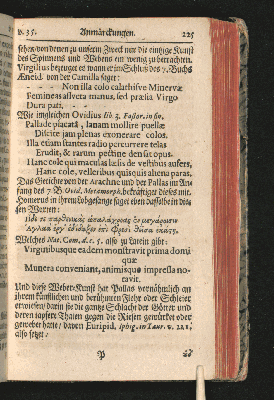 v. 35. Anmärckungen. 225
sehen/von denen zu unserm Zweck nur die eintzige Kunst
des Spinnens und Webens ein wenig zu betrachten.
Virgilius bezeuget es wann er im Schluß des 7. Buchs
Æneid. von der Camilla saget:
Non illa colo calathisve Minervæ
Femineas assveta manus, sed præsia Virgo
Dura pati.
Wie imgleichen Ovidius lib 3. Fastor. in fin.
Pallade placatâ, lanam mollire puellæ
Discite jam plenas exonerare colos.
Illa etiam stantes radio percurrere telas
Erudit, & rarum pectine densat opus.
Hanc cole qui maculas læsis de vestibus aufers,
Hanc cole, velleribus quisquis ahena paras.
Das Getichte von der Arachne und der Pallas im An-
fang des 7. B. Ovid. Metamorph. bekräftiget dieses mit.
Homerus in ihrem Lobgesange saget eben dasselbe in die-
sen Worten:
Welches Nat. Com. d. c. 5. also zu Latein gibt:
Virginibusque eadem monstravit prima domi
quæ
Munera conveniant, animisque impressa no-
tavit.
Und diese Weber-Kunst hat Pallas vernähmlich an
ihrem künstlichen und berühmten Flohr oder Schleier
erwiesen/ darin sie die gantze Schlacht der Götter und
deren tapfere Thaten gegen die Riesen gewürcket oder
geweber hatte/ davon Euripid. Iphig. in Taur. v. 222.
also setzet:
P